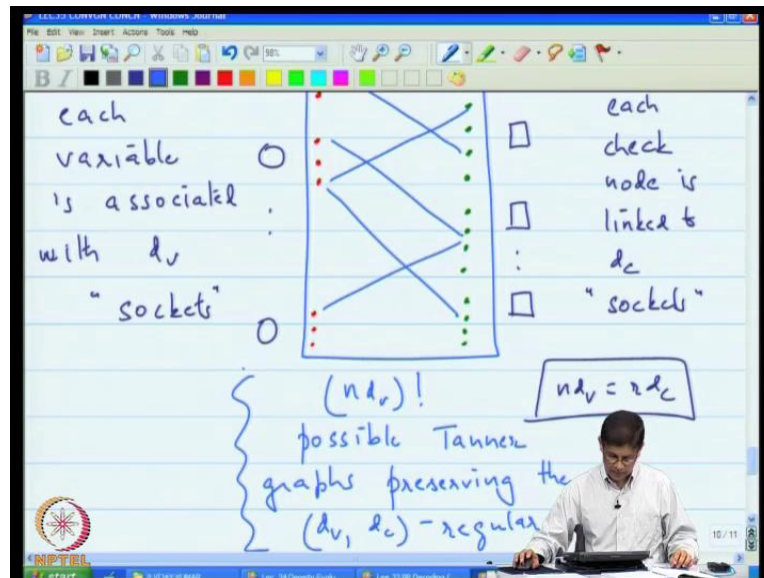 LEC35 CONVGN CONCN - Windows Journal
File Edit View Insert Actions Tools Help
98%
B I
each
variable
is associated
with dv
"sockets"
each
check
node is
linked to
dc
"sockets"
(n dv)!
n dv = r dc
possible Tanner
graphs preserving the
(dv, dc) - regular
10 / 11
NPTEL
start